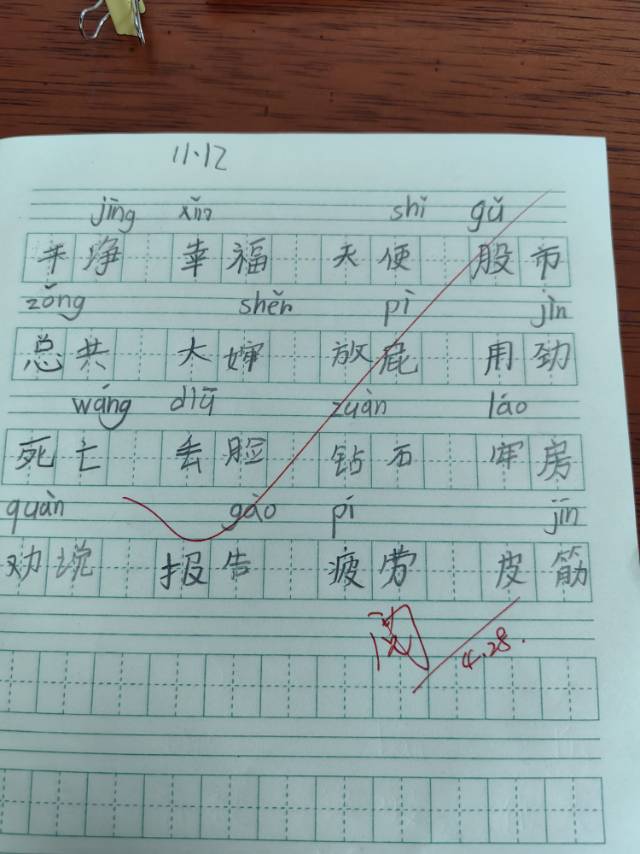 11.12
jīng xìng shǐ gǔ
干净 幸福 天使 股市
zǒng shěn pì jìn
总共 大婶 放屁 用劲
wáng diū zuàn láo
死亡 丢脸 钻石 牢房
quàn gào pí jīn
劝说 报告 疲劳 皮筋
阅
4.28.